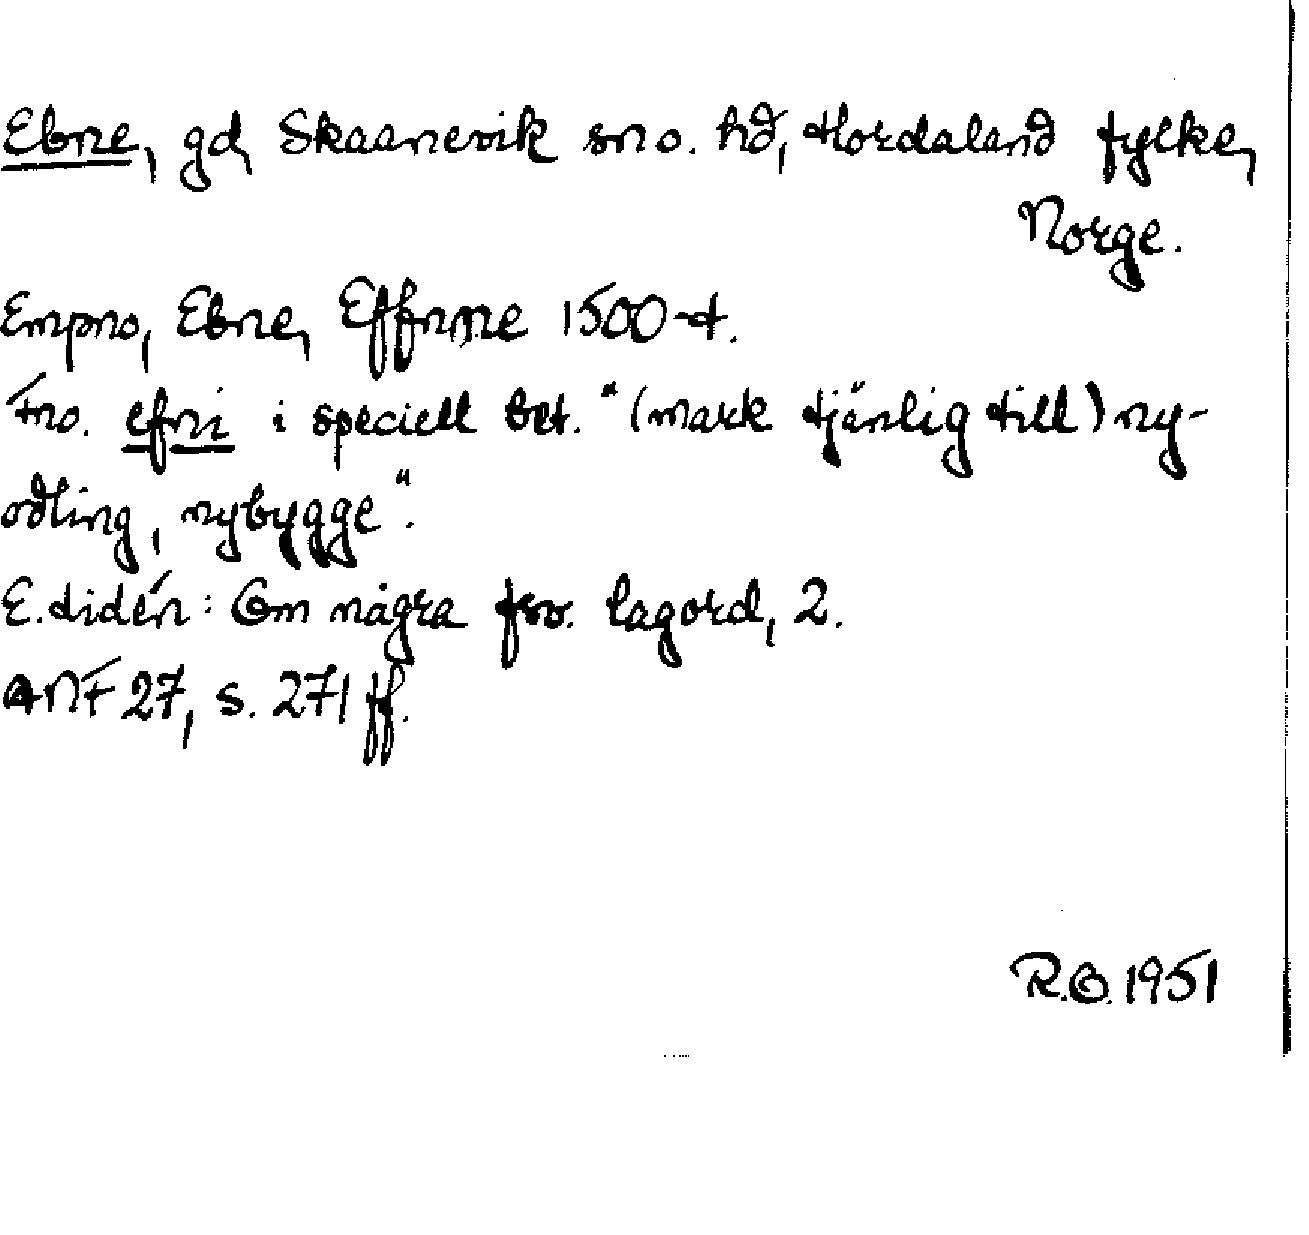 Ebne, gd, Skaanevik sn o. hd, Hordaland fylke,
Norge.
Empno, Ebne, Effnne 1500-t.
Fno. efni i speciell bet. "(mark tjänlig till) ny-
odling, nybygge".
E. Lidén: Om några fsv. lagord, 2.
ANF 27, s. 271 ff.
R.O. 1951